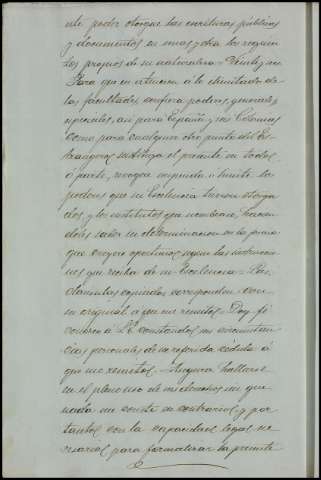 este poder otorgue las escrituras públicas
y documentos en una y otra los requisi
tos propios de su naturaleza = Veinte y un
Para que en atencion á lo ilimitado de
las facultades, confiera poderes, generales
especiales, asi para España y sus Colonias
como para cualquier otro punto del Es-
trangero sustituya el presente en todo
ó parte, revoque suspenda ó limite los
poderes que su Excelencia tuviere otorga
dos, y los sustitutos que nombrare, hacien
doles saber su determinacion en la forma
que creyere oportuna segun las instruccio
nes que reciba de su Excelencia = Las
clausulas copiadas corresponden con
su original á que me remito = Doy fé
conozco á S.E. constandome sus circunstan
cias personales de su referida cédula á
que me remito = Asegura hallarse
en el pleno uso de sus derechos sin que
nada me conste en contrario, y por
tanto con la capacidad legal ne
cesaria para formalizar la presente